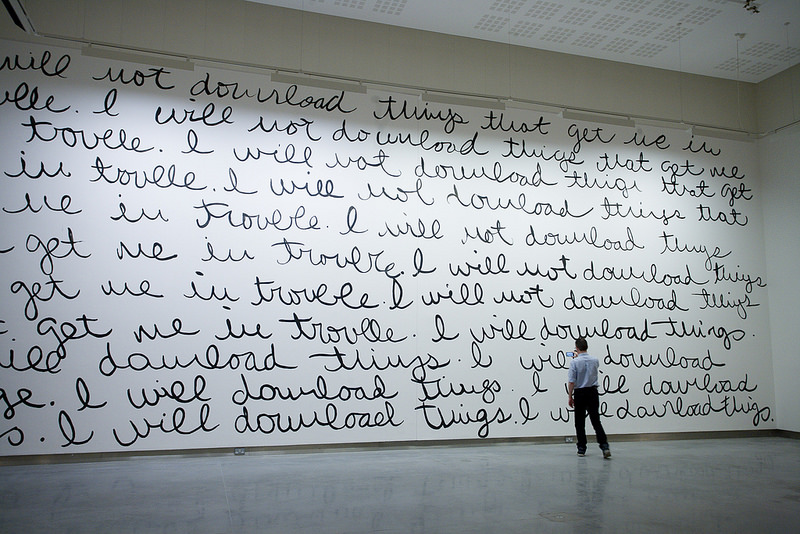 will not download things that get me in
. I will not download things that get me
trouble. I will not download things that get
in trouble. I will not download things that
me in trouble. I will not download things
get me in trouble. I will not download things
get me in trouble. I will not download things
get me in trouble. I will download things.
download things. I will download
. I will download things. I will download
. I will download things. I will download things.